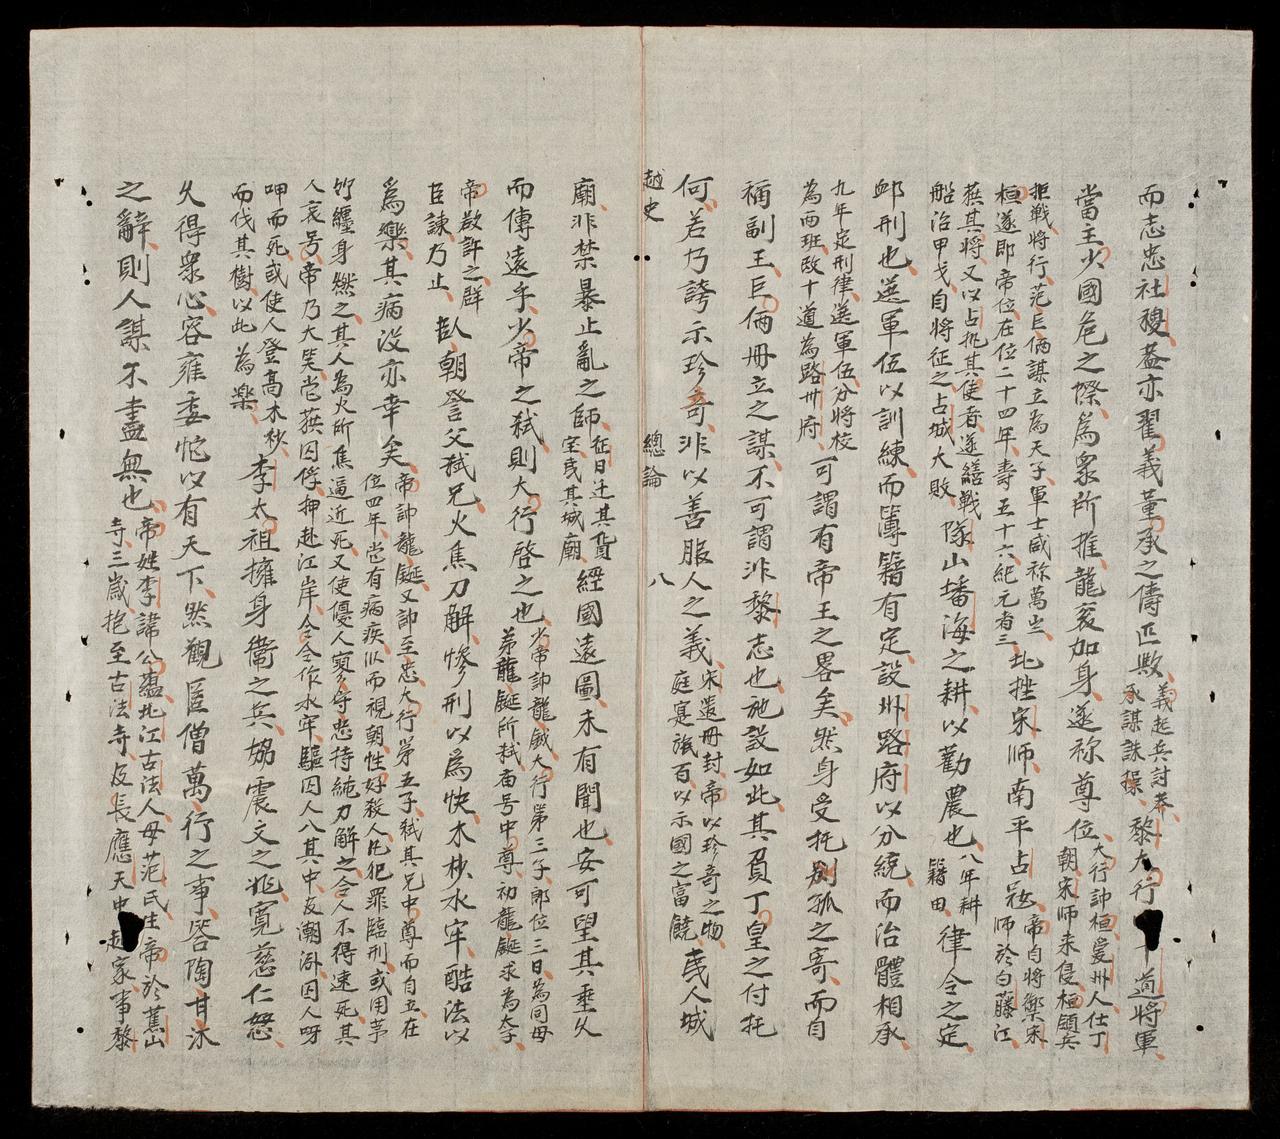 而志忠社稷蓋亦翟義董承之儔匹歟義起兵討莽
承謀誅操黎大行十道將軍
當主少國危之際爲衆所推龍袞加身遂称尊位大行帥桓愛州人仕丁
朝宋師來侵桓領兵
拒戰將行范巨俩謀立為天子軍士咸祢萬岁
桓遂即帝位在位二十四年壽五十六紀元者三北挫宋師南平占冦帝自將禦宋
師於白藤江
蔡其將又以占挑其使者遂繕戰
船治甲戈自將征之占城大敗隊山墦海之耕以勸農也八年耕
籍田律令之定
郎刑也選軍伍以訓練而簿籍有定設州路府以分統而治體相承
九年定刑律選軍伍分將校
為両班改十道為路州府可謂有帝王之畧矣然身受托别孤之寄而自
稱副王巨俩冊立之謀不可謂泮黎志也施設如此其負丁皇之付托
何若乃誇示珍奇泮以善服人之義宋遣冊封帝以珍奇之物
庭寔旅百以示國之富饒残人城
越史 總論 八
廟泮禁暴止亂之師征日迁其貨
寔残其城廟經國遠圖未有聞也安可望其垂久
而傳遠乎少帝之弑則大行啓之也少帝帥龍鉞大行第三子郎位三日為同母
弟龍鋋所弑庙号中尊初龍鋋求為李
帝敨許之群
臣諫乃止臥朝登父弑兄火焦刀解慘刑以爲快木杪水牢酷法以
爲樂其病没亦幸矣帝帥龍鋋又帥至忠大行第五子弑其兄中尊而自立在
位四年嘗有病疾以而視朝性好殺人凡犯罪臨刑或用茅
竹纏身燃之其人為火所焦逼近死又使優人寥守忠持鈍刀解之令人不得速死其
人哀号帝乃大笑尝蔡囚俘押赴江岸令令作水牢驅囚人入其中及潮汐囚人呀
呷而死或使人登高木杪
而伐其樹以此為樂李太祖擁身衞之兵嫋震文之兆寛慈仁恕
久得衆心容雍委佗以有天下然觀匡僧萬行之事咎陶甘沐
之辭則人謀不盡無也帝姓李諱公蘊北江古法人母范氏生帝於蕉山
寺三歳抱至古法寺及長應天中赴家事黎